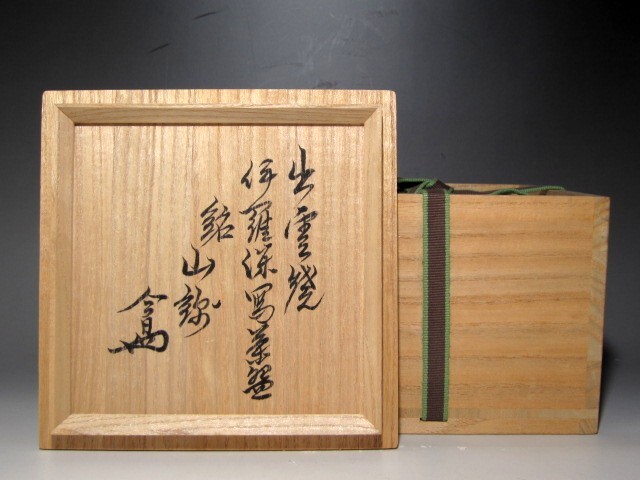 出雲焼
伊羅保写茶盌
銘山錦